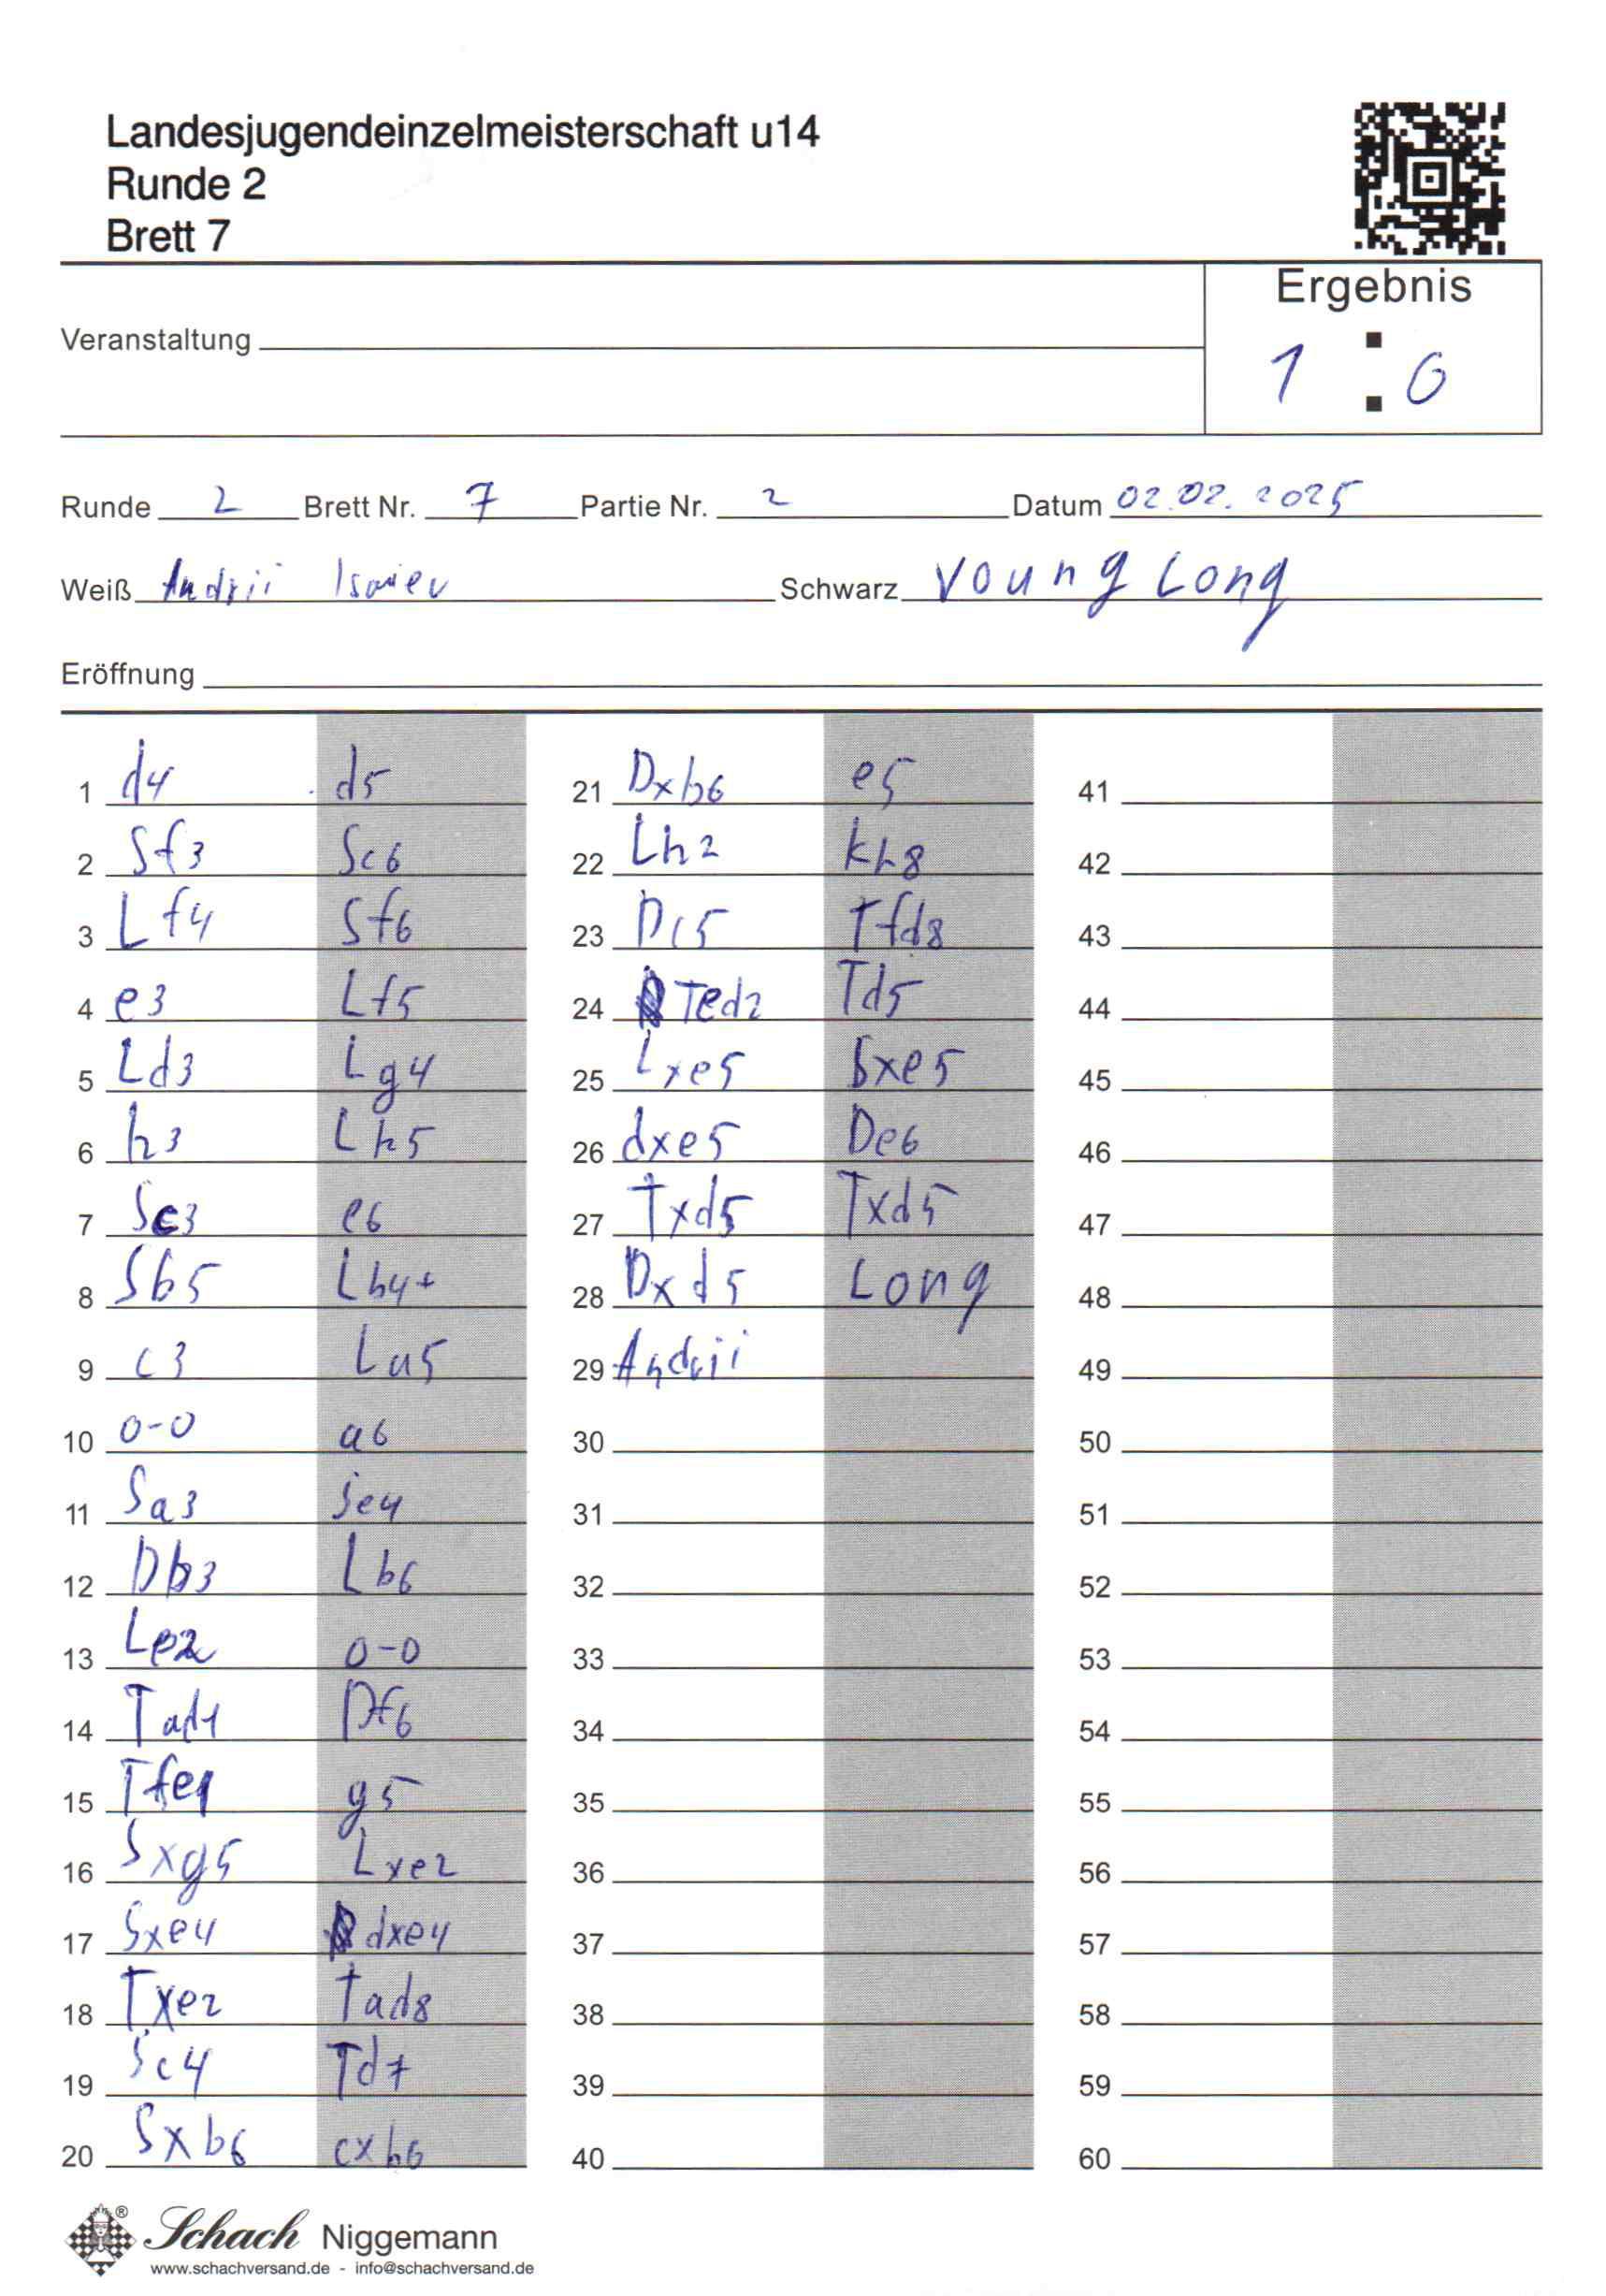 Landesjugendeinzelmeisterschaft u14
Runde 2
Brett 7
Ergebnis
Veranstaltung
1 : 0
Runde 2 Brett Nr. 7 Partie Nr. 2 Datum 02.02.2025
Weiß Andrii Isaiev Schwarz Young Long
Eröffnung
1 d4 d5 21 Dxb6 e5 41
2 Sf3 Sc6 22 Lh2 Kh8 42
3 Lf4 Sf6 23 Dc5 Tfd8 43
4 e3 Lf5 24 Ted2 Td5 44
5 Ld3 Lg4 25 Lxe5 Sxe5 45
6 h3 Lh5 26 dxe5 De6 46
7 Sc3 e6 27 Txd5 Txd5 47
8 Sb5 Lb4+ 28 Dxd5 Long 48
9 c3 La5 29 Andrii 49
10 0-0 a6 30 50
11 Sa3 Se4 31 51
12 Db3 Lb6 32 52
13 Le2 0-0 33 53
14 Tad1 Df6 34 54
15 Tfe1 g5 35 55
16 Sxg5 Lxe2 36 56
17 Sxe4 dxe4 37 57
18 Txe2 Tad8 38 58
19 Sc4 Td7 39 59
20 Sxb6 cxb6 40 60
Schach Niggemann
www.schachversand.de - info@schachversand.de